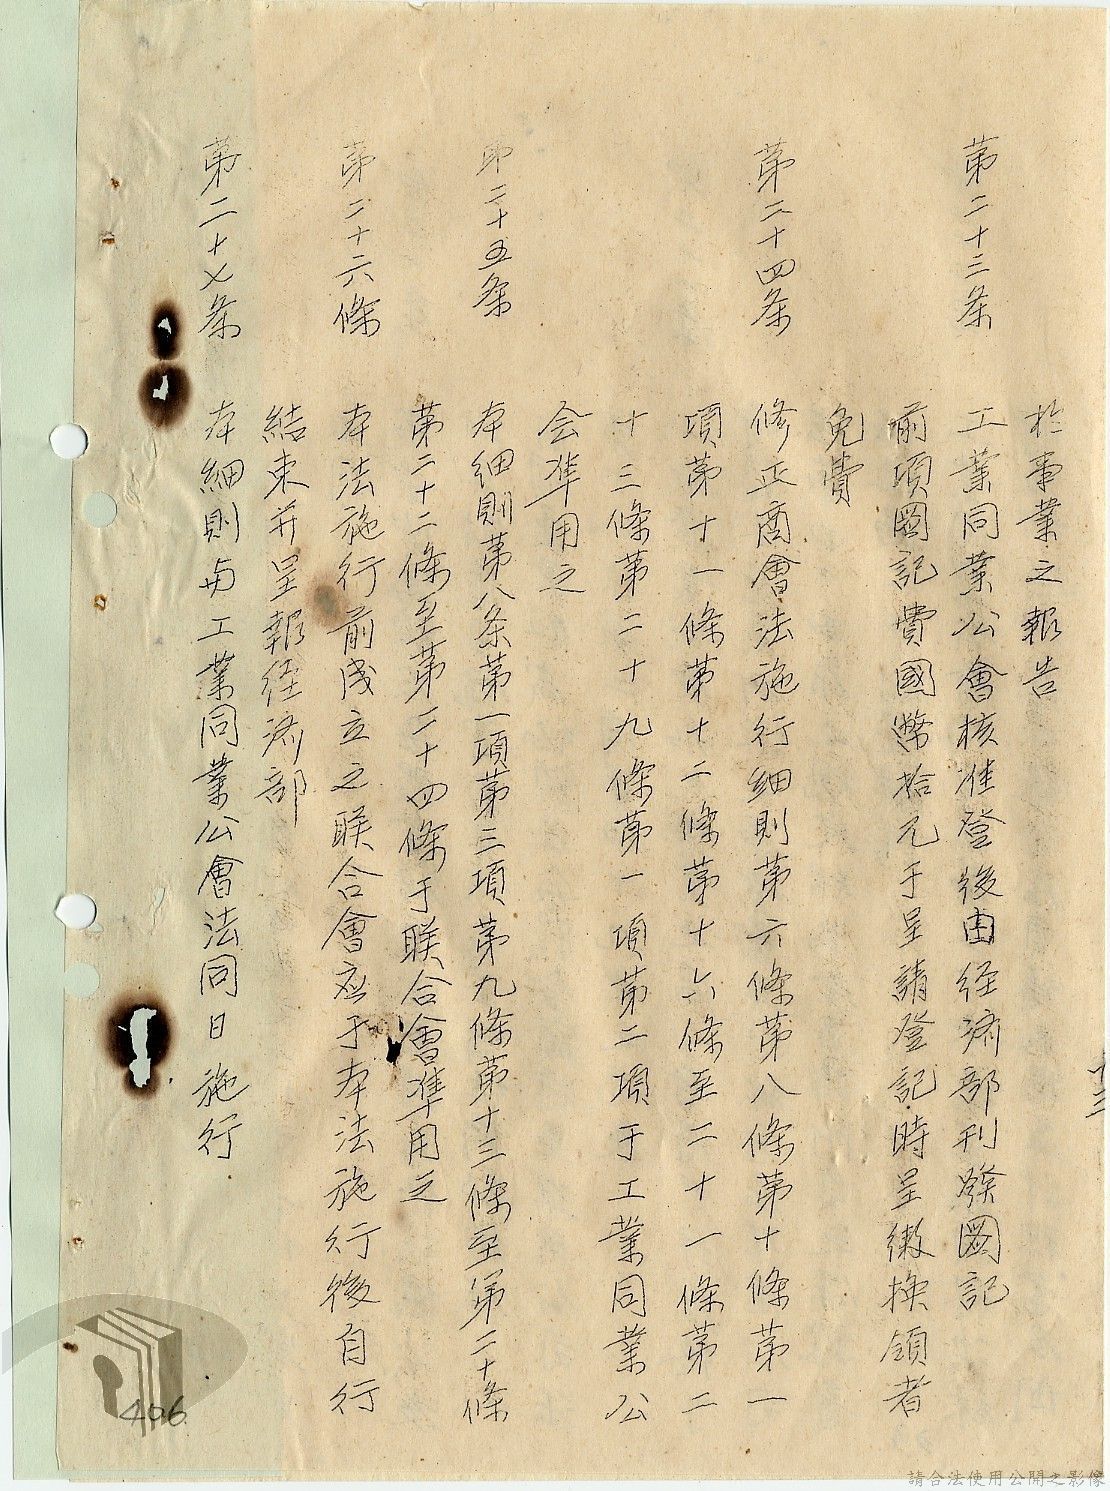 十三
於事業之報告
第二十三条 工業同業公會核准登後由经济部刊發圖記
前項圖記費國幣拾元于呈請登記時呈缴换領者
免費
第二十四条 修正商會法施行细則第六條第八條第十條第一
項第十一條第十二條第十六條至二十一條第二
十三條第二十九條第一項第二項于工業同業公
会準用之
第二十五条 本细則第八条第一項第三項第九條第十三條至第二十條
第二十二條至第二十四條于联合會準用之
第二十六條 本法施行前成立之联合會应于本法施行後自行
結束并呈報经济部
第二十七条 本細則与工業同業公會法同日施行
406
請合法使用公開之影像